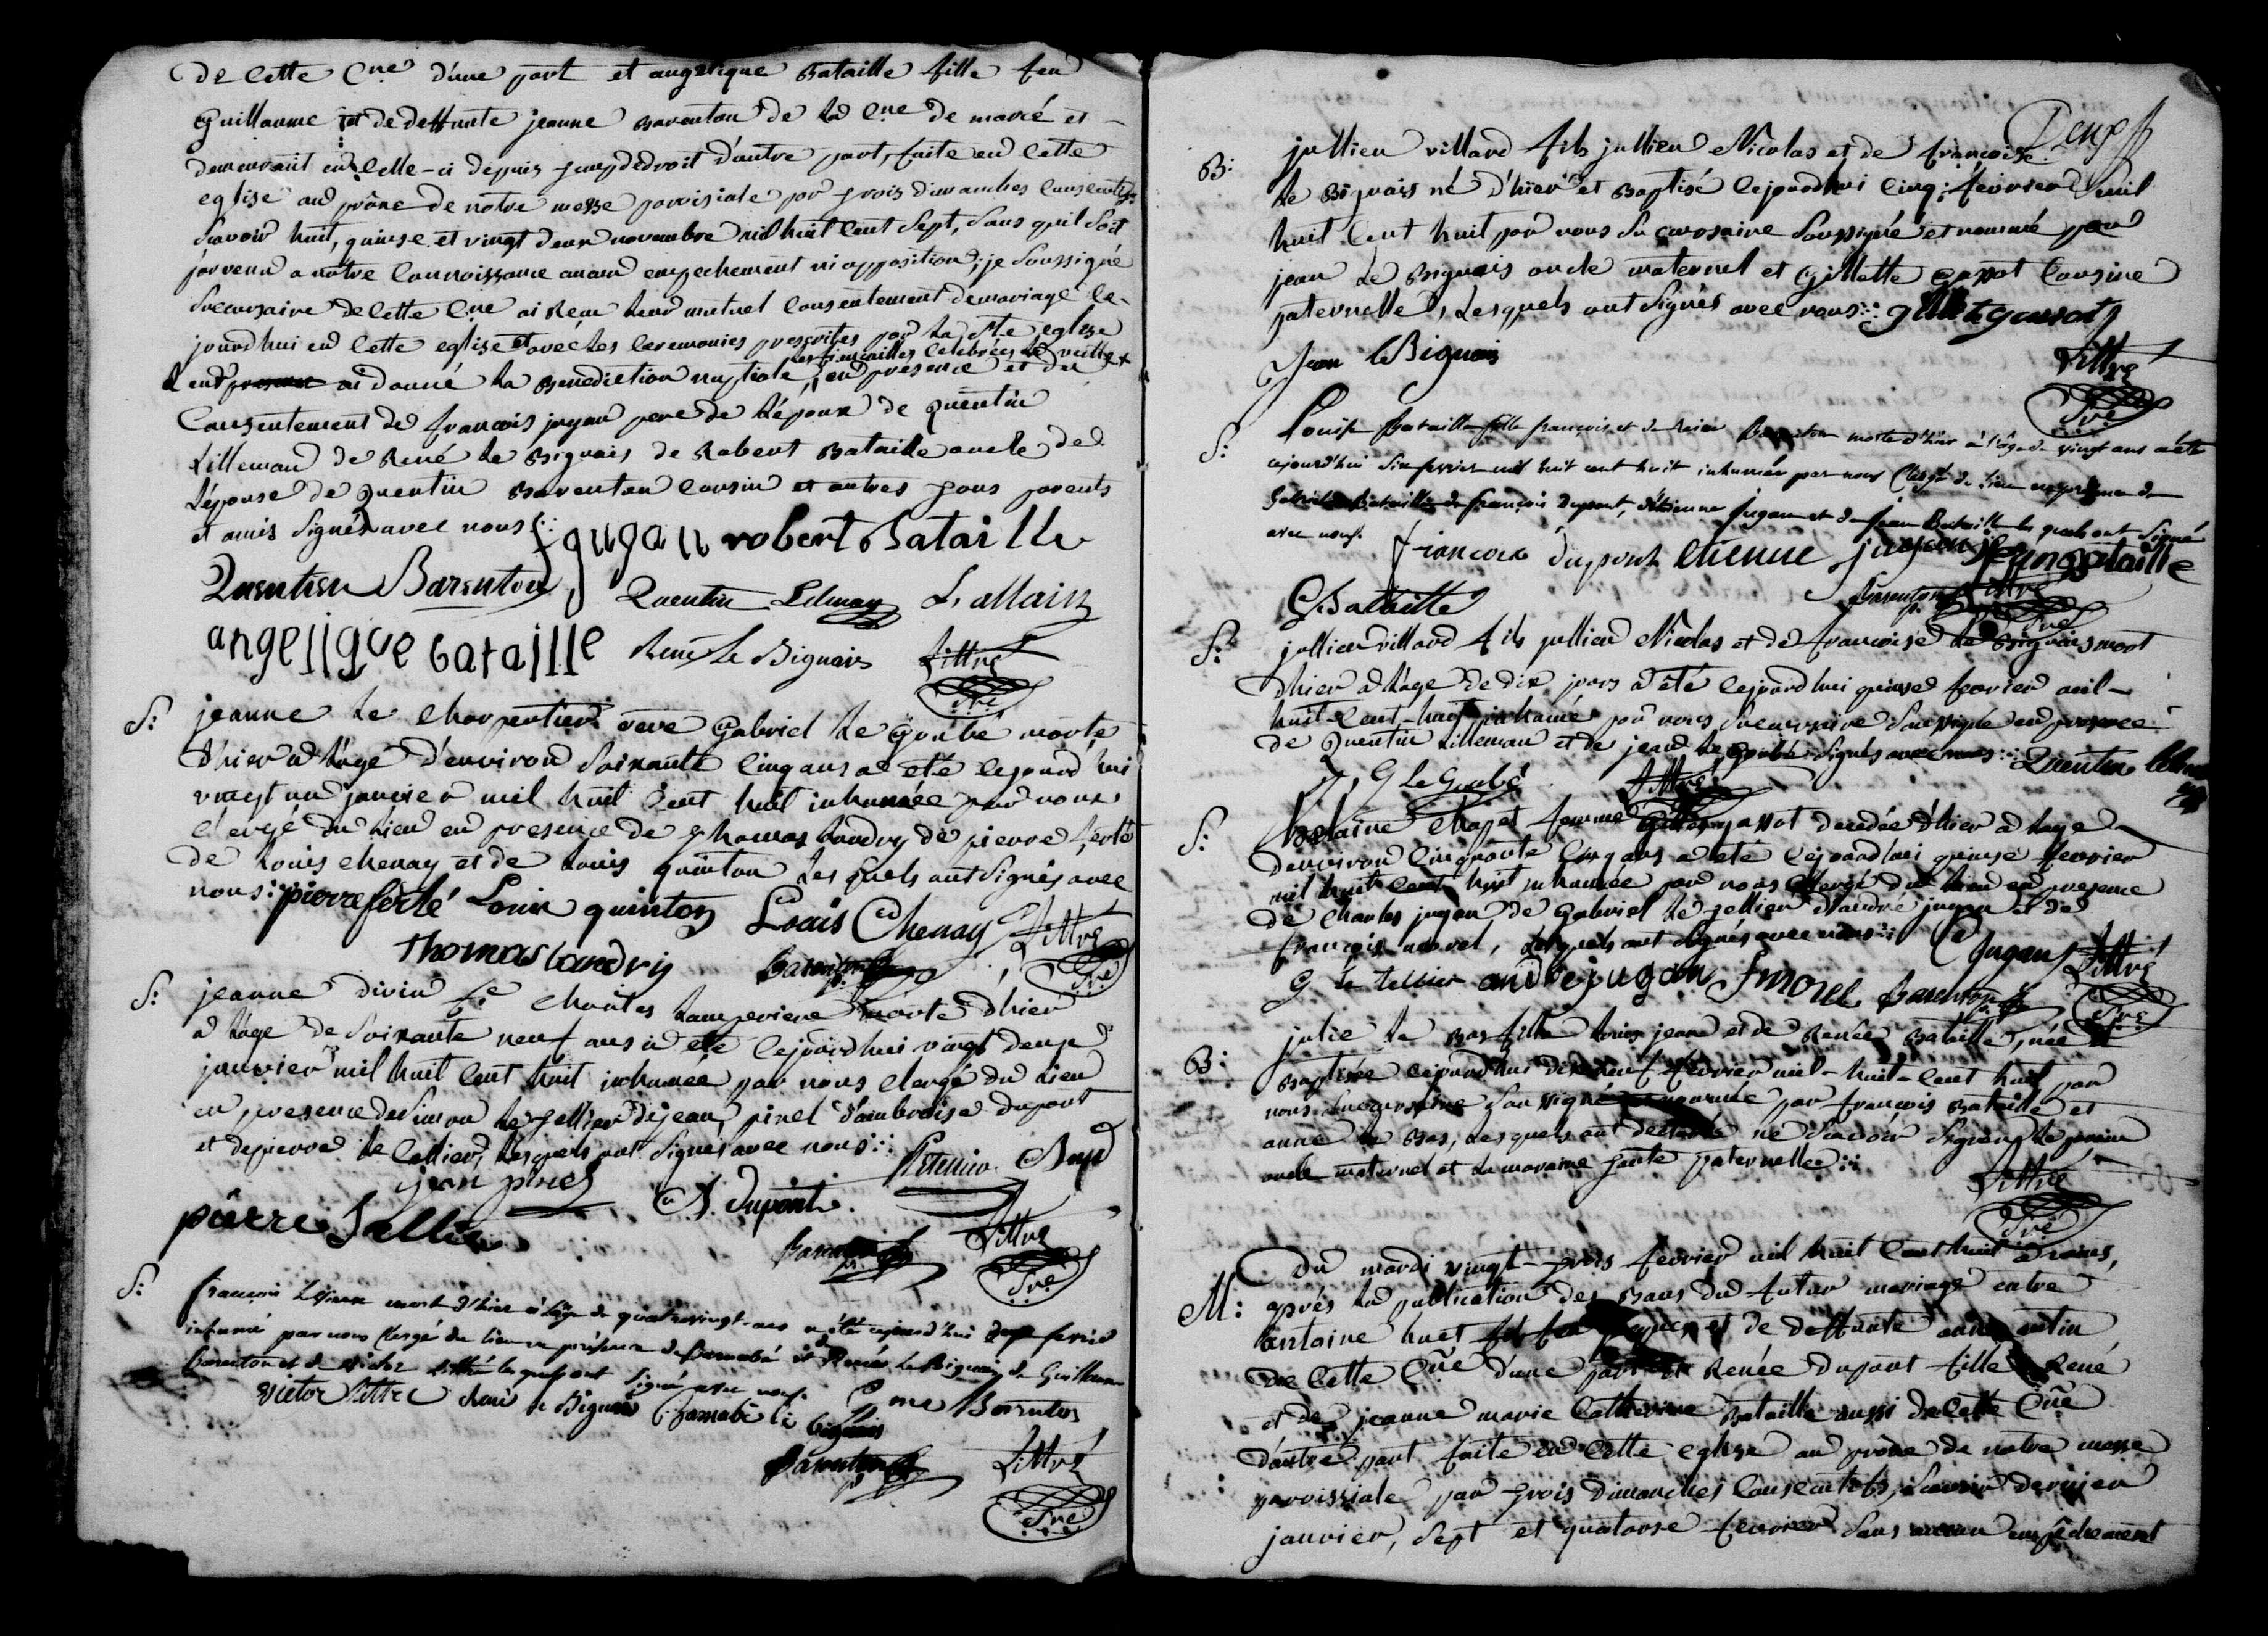 de cette Cne d'une part et angelique Bataille fille feu
Guillaume et de deffunte jeanne Barenton de la Cne de marcé et
demeurant en celle-ci depuis d'autre part, faite en cette
eglise au prône de notre messe paroisiale par trois dimanches consecutifs
savoir huit, quinse et vingt deux novembre mil huit cent sept, sans quil soit
parvenu a notre connoissance aucun empechement ni opposition; je soussigné
succursaire de cette Cne ai reçu leur mutuel consentement de mariage ce-
jourdhui en cette eglise et avec les ceremonies prescrites par la ste eglise
les fiançailles celebrées la veille
leur ai donné la Benediction nuptiale, en presence et du
consentement de francois jugan pere de l'époux de Quentin
Lilleman de René le Bignais de Robert Bataille oncle de
l'épouse de Quentin Barenton cousin et autres tous parents
et amis signés avec nous
f jugan robert Bataille
Quentien Barenton Quentin Lilman L. allain
angelique bataille René Le Bignais Littré
sre
S: jeanne le charpentier veve Gabriel le Goubé morte
d'hier a l'age d'environ soixante cinq ans a été cejourd'hui
vingt un janvier mil huit cent huit inhumée par nous
clergé du lieu en presence de thomas landry de pierre ferté
de louis chenay et de louis quinton lesquels ont signés avec
nous: pierre ferté Louis quinton Louis Chenay Littré
Thomas landry Barenton sre
S: jeanne divin fe charles lamperiere morte d'hier
a l'age de soixante neuf ans a été cejourd'hui vingt deux
janvier mil huit cent huit inhumée par nous clergé du lieu
en presence de simon le tellier de jean pinel d'ambroise dupont
et de pierre le tellier, lesquels ont signés avec nous
jean pinel A. dupont
pierre Tellier Barenton Littré
sre
S: François mort d'hier à l'âge de quatrevingt ans a été cejourd'hui fevrier
inhumé par nous clergé du lieu en présence de Barnabé et de René Le Bignais de Guillaume
Barenton et de victor Littré lesquels ont signé avec nous.
victor Littré René le Bignais Barnabé le bignais Gme Barenton
Barenton Littré
sre
Deux
B: jullien villard fils jullien Nicolas et de françoise
le Bignais né d'hier et Baptisé cejourdhui cinq fevrier mil
huit cent huit par nous succursaire soussigné et nommé par
jean le Bignais oncle maternel et Gillette gassot cousine
paternelle, lesquels ont signés avec nous gillette gassot
Jean le Bignais Littré
sre
S: Louise Bataille fille françois et de Barenton morte d'hier à l'âge de vingt ans a été
cejourd'hui six fevrier mil huit cent huit inhumée par nous Clergé du lieu en présence de
Gabriel Bataille de françois Dupont, d'étienne jugan et de jean Bataille lesquels ont signé
avec nous. francois dupont etienne jugan jean Bataille
G. Bataille Barenton Littré
sre
S: jullien villard fils jullien Nicolas et de françoise le Bignais mort
dhier a l'age de dix jours a été cejourdhui quinse fevrier mil-
huit-cent-huit inhumé par nous succursaire soussigné en presence
de Quentin Lilleman et de jean le Goubé signés avec nous Quentin Lilman
J, G Le Goubé Littré
S: chapet femme gassot decedée d'hier a l'age
d'environ cinquante cinq ans a été cejourdhui quinse fevrier
mil huit cent huit inhumée par nous Clergé du lieu en presence
de charles jugan de Gabriel le tellier d'andré jugan et de
françois morel, lesquels ont signés avec nous C jugan Littré
G le tellier andré jugan f morel Barenton sre
B: julie le Bas fille louis jean et de Renée Bataille, née et
Baptisée cejourdhui dix neuf fevrier mil-huit-cent huit par
nous succursaire soussigné et nommée par françois Bataille et
anne le Bas, lesquels ont declarés ne savoir signer le parain
oncle maternel et la maraine tante paternelle
Littré
sre
M: Du mardi vingt-trois fevrier mil huit cent huit
après la publication des Bans du futur mariage entre
antoine huet fils feu et de deffunte
de cette Cne d'une part et Renée dupont fille René
et de jeanne marie Catherine Bataille aussi de cette Cne
d'autre part faite en cette eglise au prône de notre messe
paroissiale par trois dimanches consecutifs, savoir dernier
janvier, sept et quatorse fevrier sans aucun empêchement